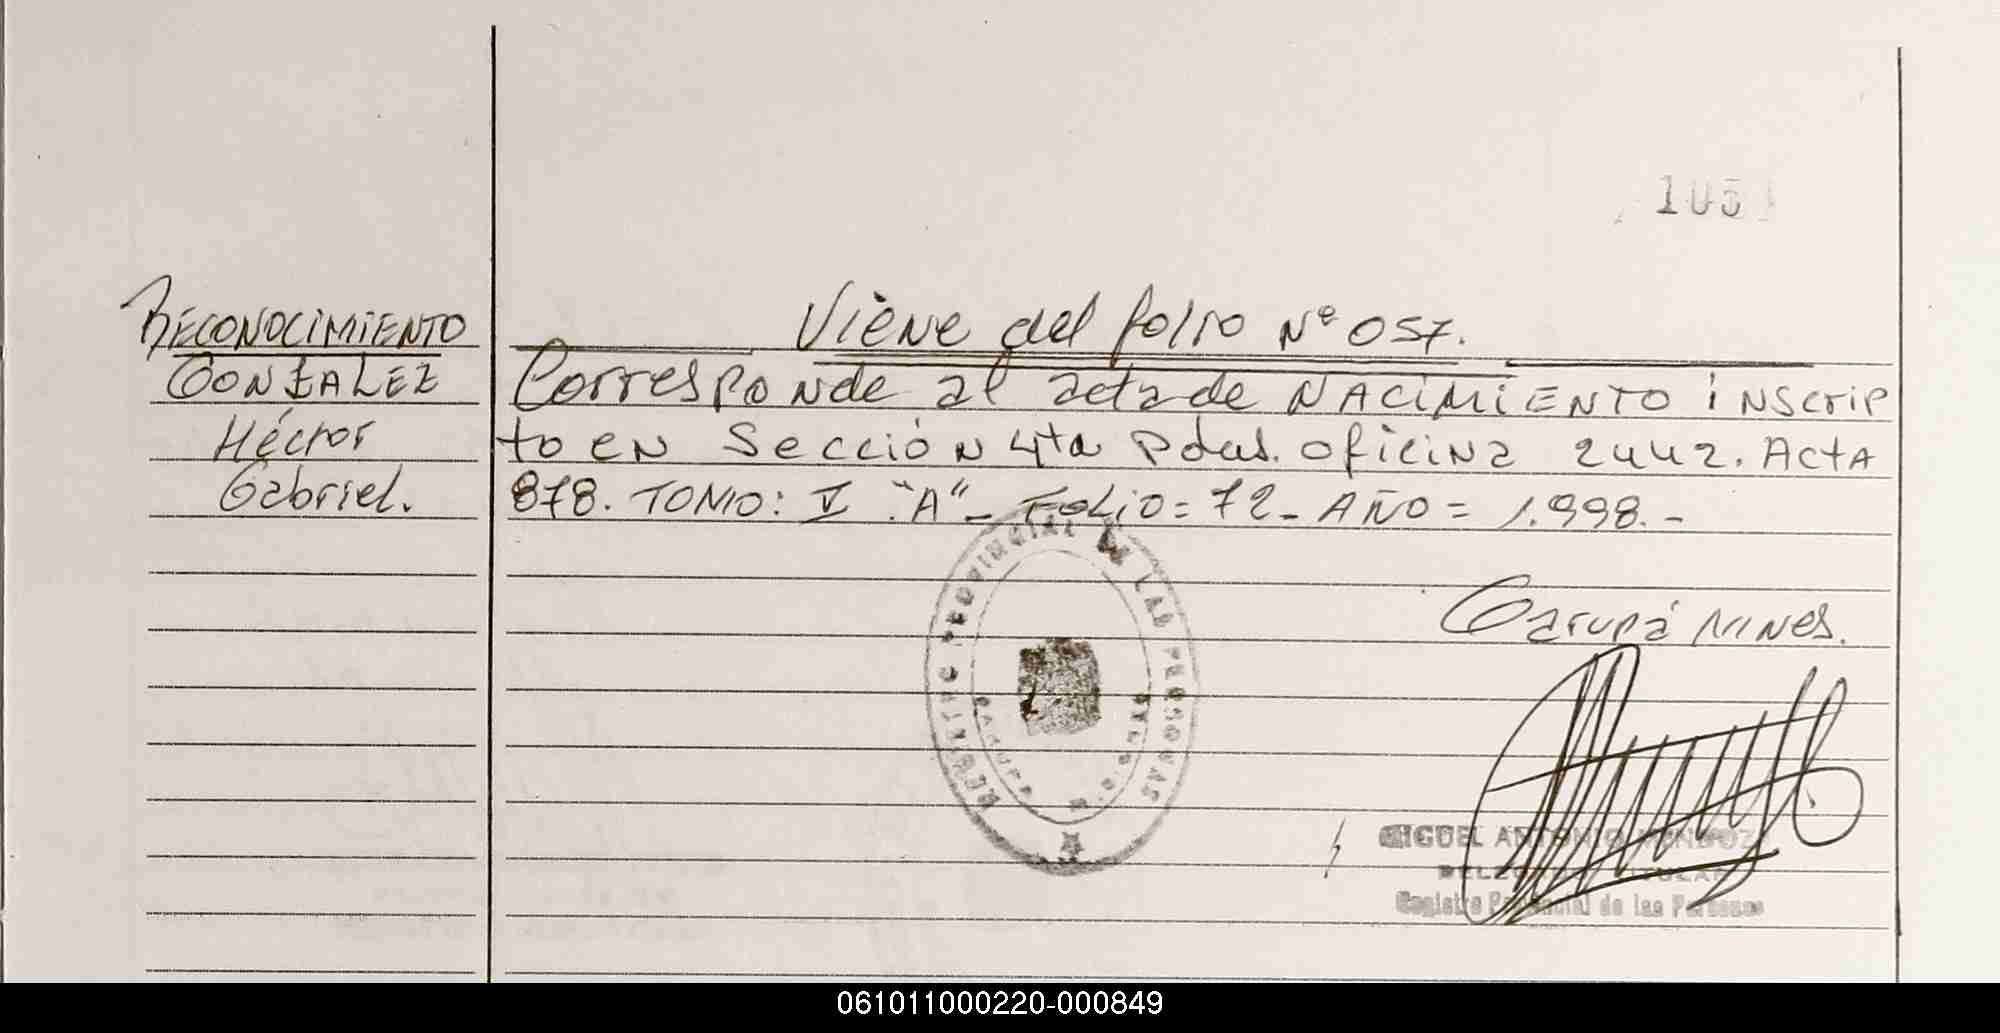 105
RECONOCIMIENTO
GONZALEZ
Héctor
Gabriel.
Viene del folio Nº 057.
Corresponde al acta de NACIMIENTO inscrip
to en Sección 4ta Pdas. oficina 2442. Acta
878. TOMO: V "A"- FOLIO= 72- AÑO= 1.998.-
REGISTRO PROVINCIAL DE LAS PERSONAS
GARUPA
Garupá Mnes.
MIGUEL ANTONIO MENDOZA
DELEGADO TITULAR
Registro Provincial de las Personas
061011000220-000849